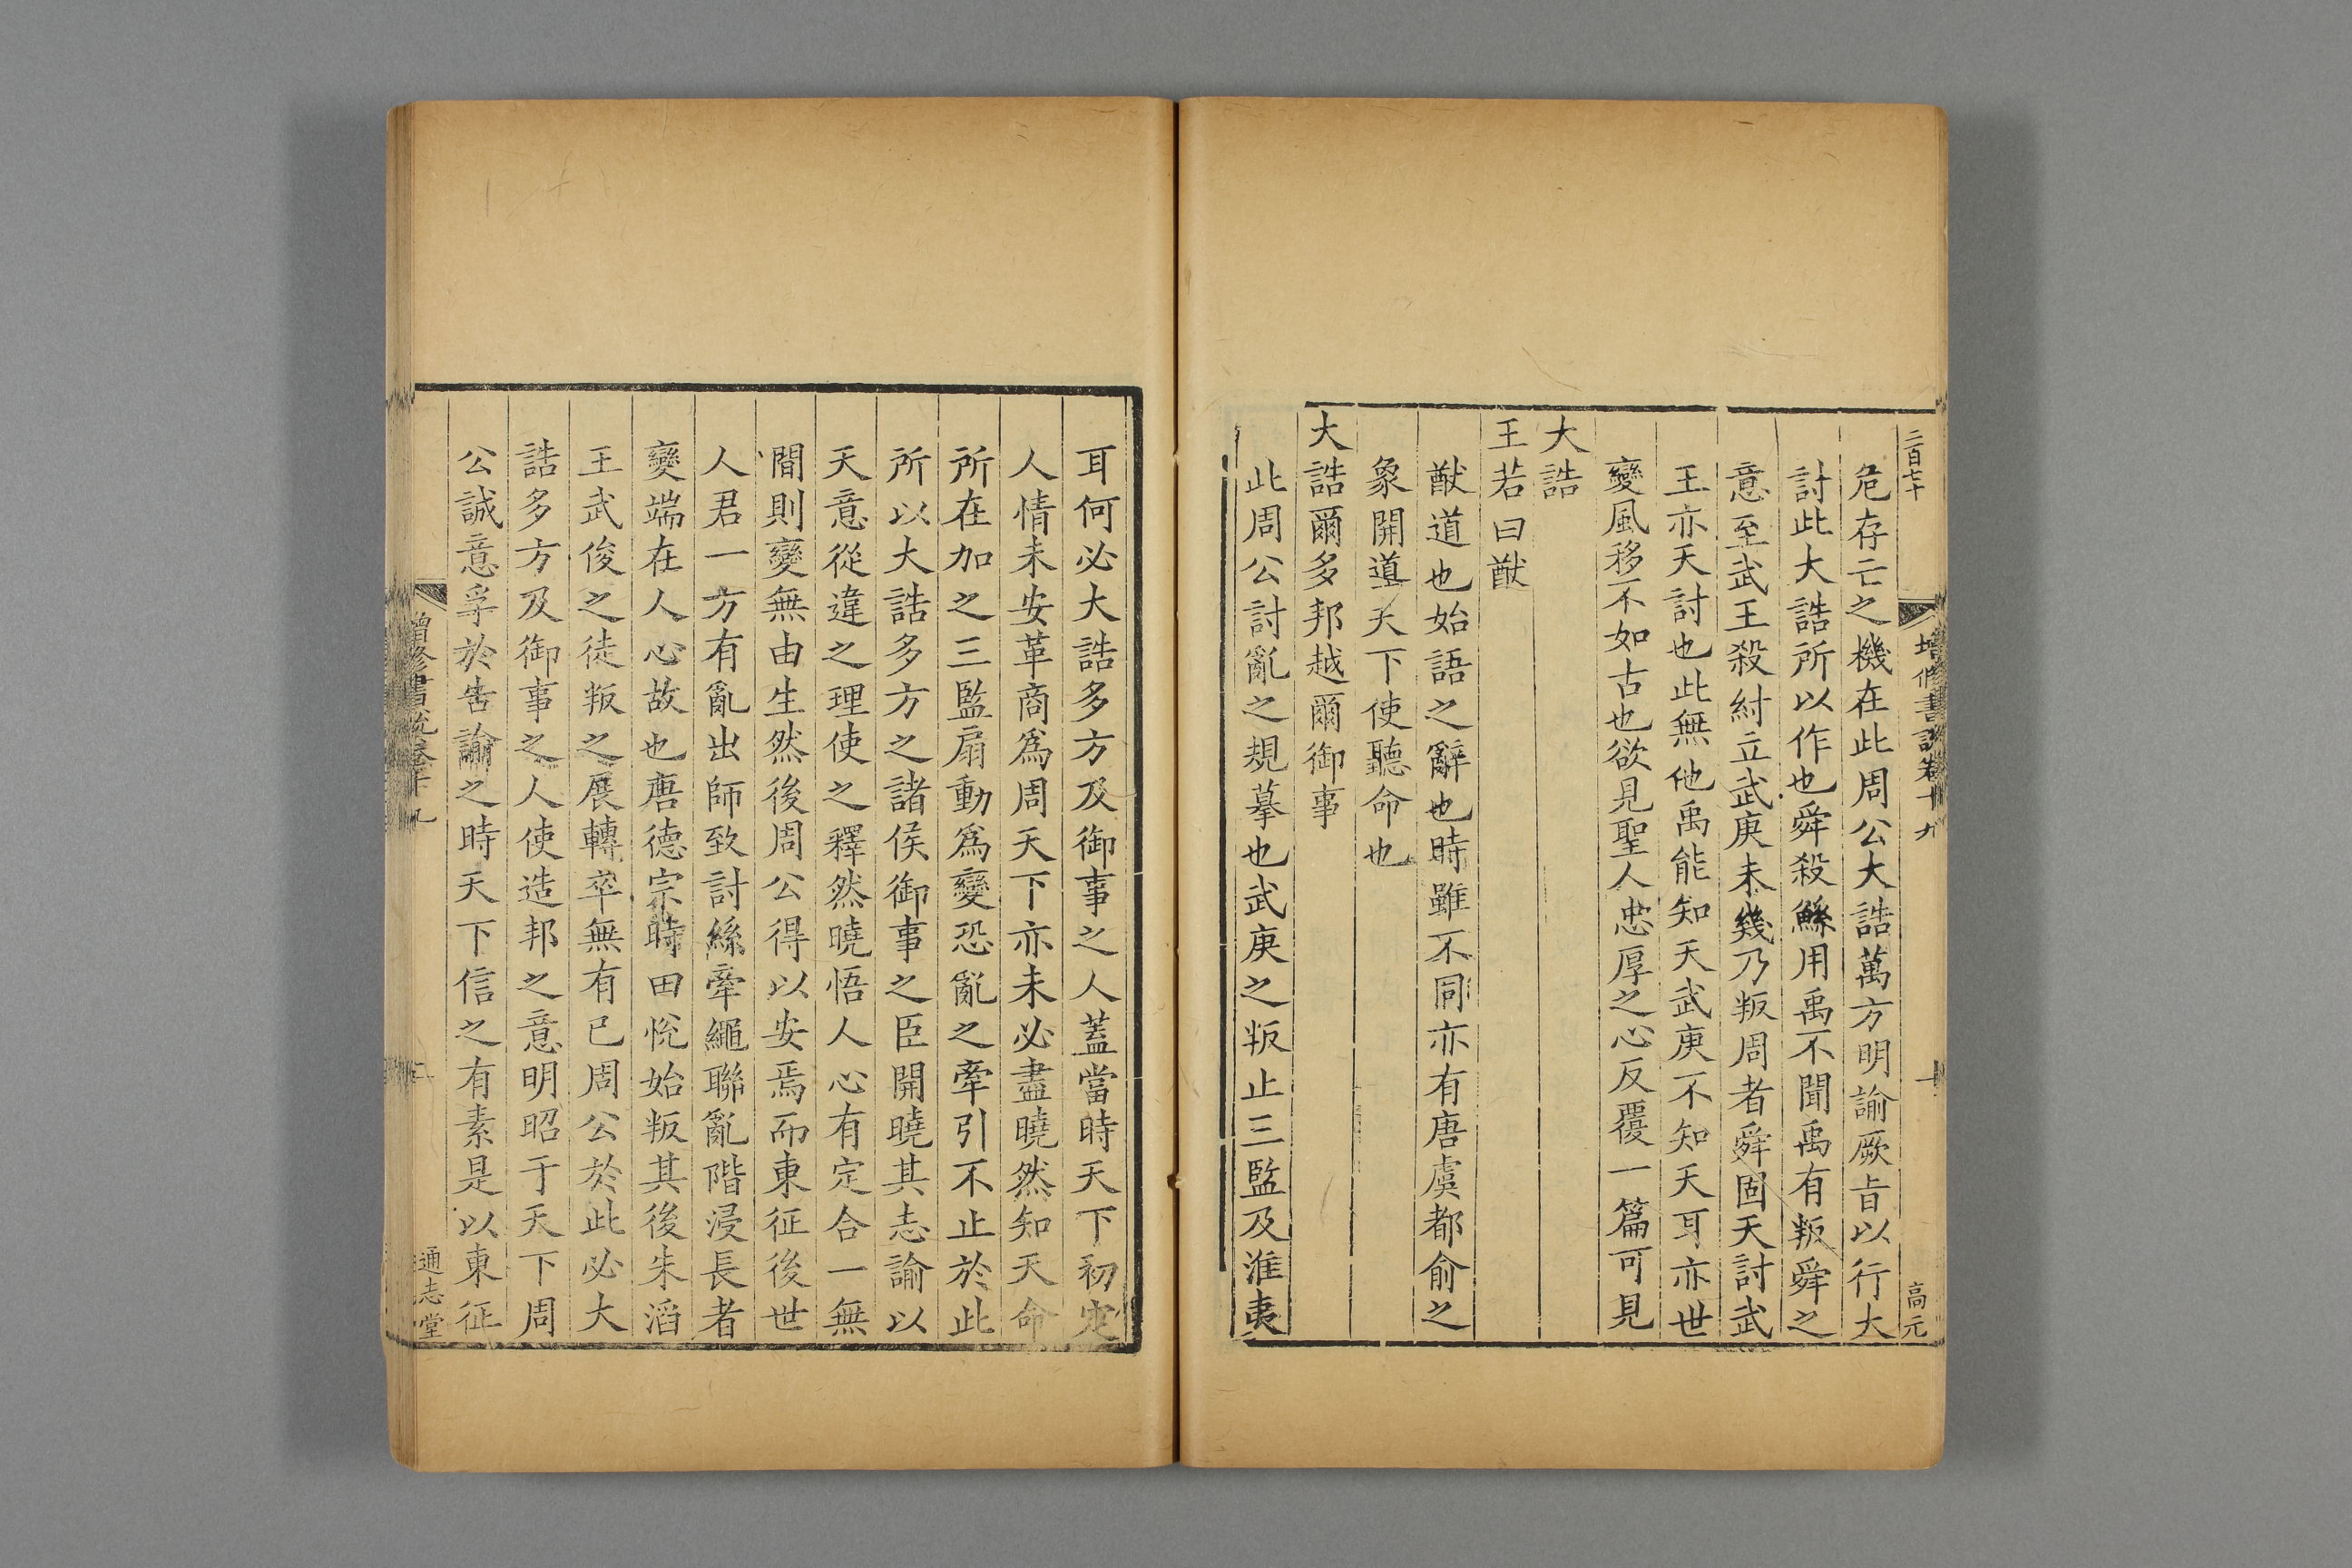 二百七十
增修書說卷十九
高元
危存亡之機在此周公大誥萬方明諭厥旨以行大
討此大誥所以作也舜殺鯀用禹不聞禹有叛舜之
意至武王殺紂立武庚未幾乃叛周者舜固天討武
王亦天討也此無他禹能知天武庚不知天耳亦世
變風移不如古也欲見聖人忠厚之心反覆一篇可見
大誥
王若曰猷
猷道也始語之辭也時雖不同亦有唐虞都俞之
象開導天下使聽命也
大誥爾多邦越爾御事
此周公討亂之規摹也武庚之叛止三監及淮夷
耳何必大誥多方及御事之人蓋當時天下初定
人情未安革商爲周天下亦未必盡曉然知天命
所在加之三監扇動爲變恐亂之牽引不止於此
所以大誥多方之諸侯御事之臣開曉其志諭以
天意從違之理使之釋然曉悟人心有定合一無
間則變無由生然後周公得以安焉而東征後世
人君一方有亂出師致討絲牽繩聯亂階浸長者
變端在人心故也唐德宗時田悅始叛其後朱滔
王武俊之徒叛之展轉卒無有已周公於此必大
誥多方及御事之人使造邦之意明昭于天下周
公誠意孚於告諭之時天下信之有素是以東征
增修書說卷十九
二
通志堂